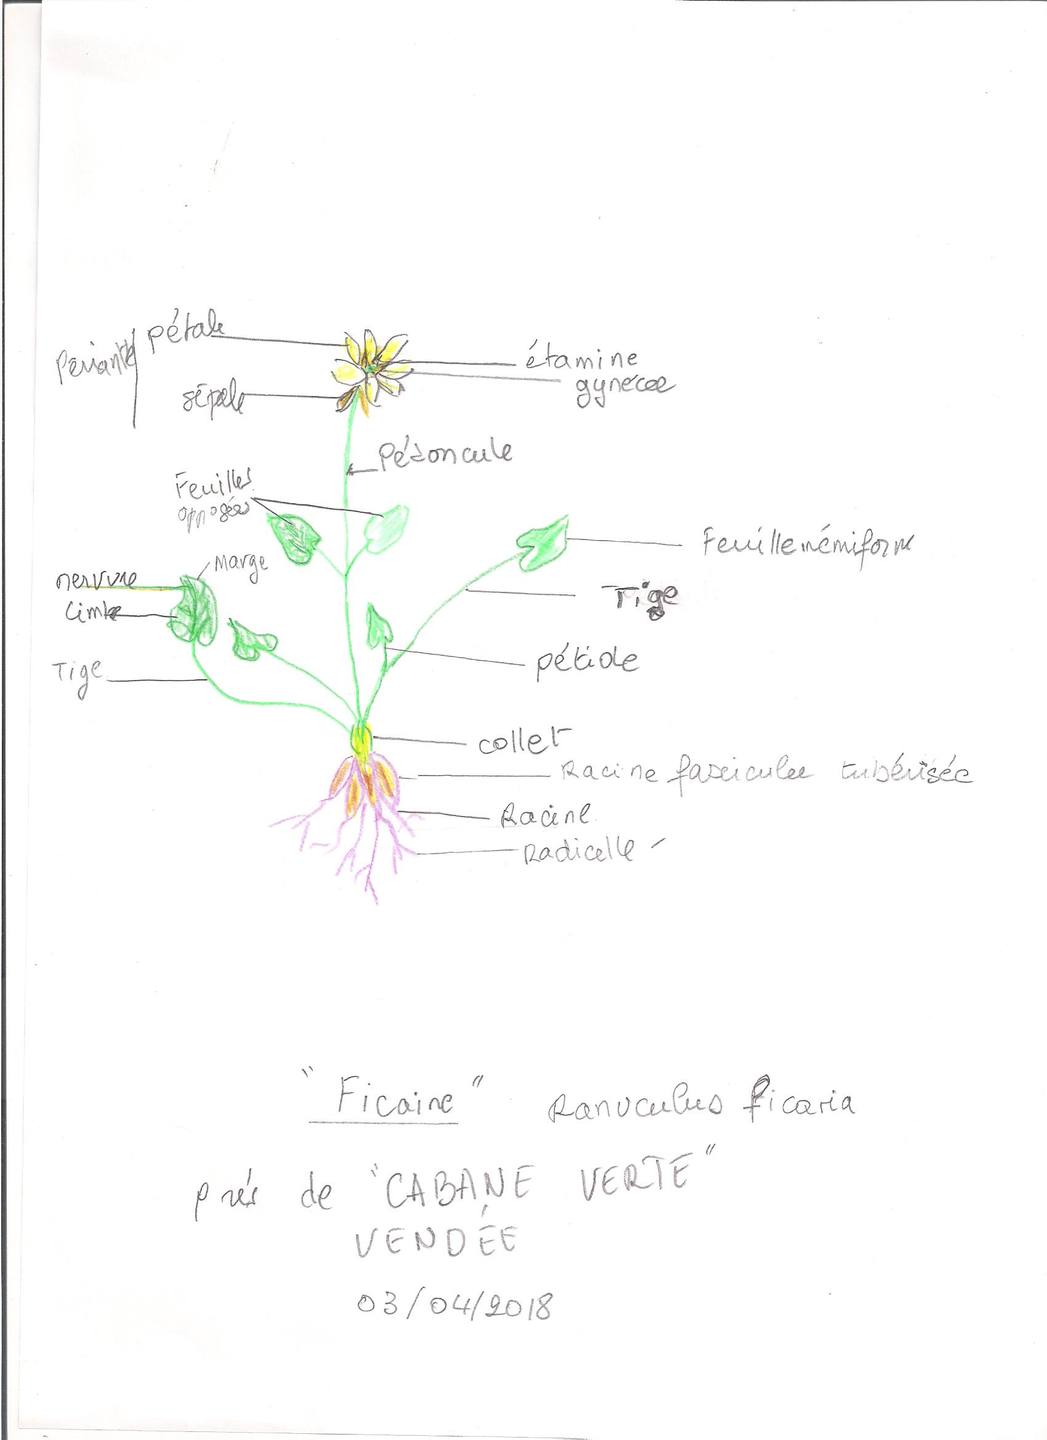 pétale
Périanthe
étamine
gynécée
sépale
Pédoncule
Feuilles
opposées
Feuille rémiforme
Marge
nervure
Limbe
Tige
Tige
pétiole
collet
Racine fasciculée tubérisée
Racine
Radicelle
"Ficaire" Ranuculus ficaria
près de "CABANE VERTE"
VENDÉE
03/04/2018